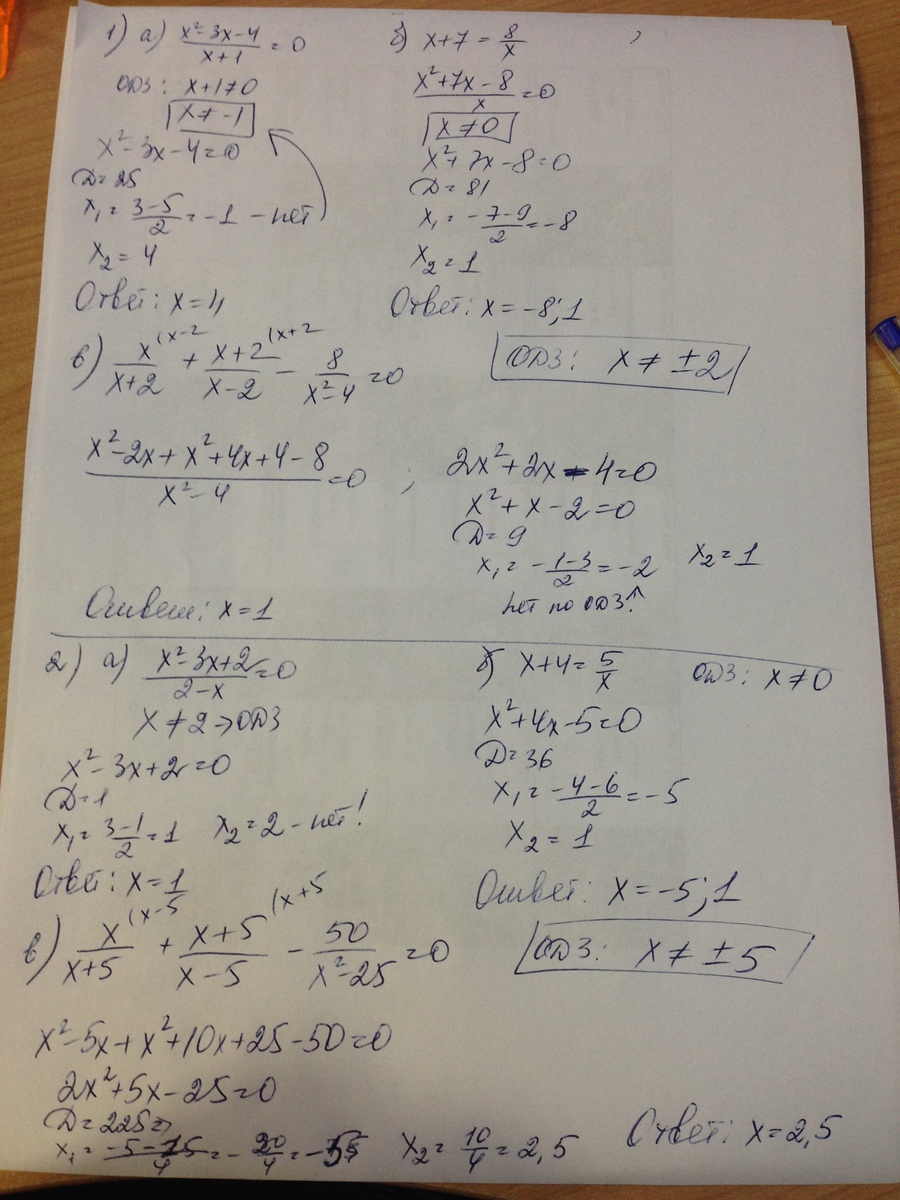 1) а) (x²-3x-4)/(x+1) = 0
ОДЗ: x+1≠0
x≠-1
x²-3x-4=0
D=25
x₁ = (3-5)/2 = -1 - нет
x₂ = 4
Ответ: x=4
б) x+7 = 8/x
(x²+7x-8)/x = 0
x≠0
x²+7x-8=0
D=81
x₁ = (-7-9)/2 = -8
x₂ = 1
Ответ: x=-8; 1
в) x/(x+2) (x-2 + (x+2)/(x-2) (x+2 - 8/(x²-4) = 0
ОДЗ: x ≠ ±2
(x²-2x+x²+4x+4-8)/(x²-4) = 0 ;
2x²+2x-4=0
x²+x-2=0
D=9
x₁ = (-1-3)/2 = -2 x₂=1
нет по ОДЗ ↑
Ответ: x=1
2) а) (x²-3x+2)/(2-x) = 0
x≠2 → ОДЗ
x²-3x+2=0
D=1
x₁ = (3-1)/2 = 1 x₂=2 - нет!
Ответ: x=1
б) x+4 = 5/x ОДЗ: x≠0
x²+4x-5=0
D=36
x₁ = (-4-6)/2 = -5
x₂ = 1
Ответ: x=-5; 1
в) x/(x+5) (x-5 + (x+5)/(x-5) (x+5 - 50/(x²-25) = 0
ОДЗ: x ≠ ±5
x²-5x+x²+10x+25-50=0
2x²+5x-25=0
D=225 ⇒
x₁ = (-5-15)/4 = -20/4 = -5 x₂ = 10/4 = 2,5
Ответ: x=2,5